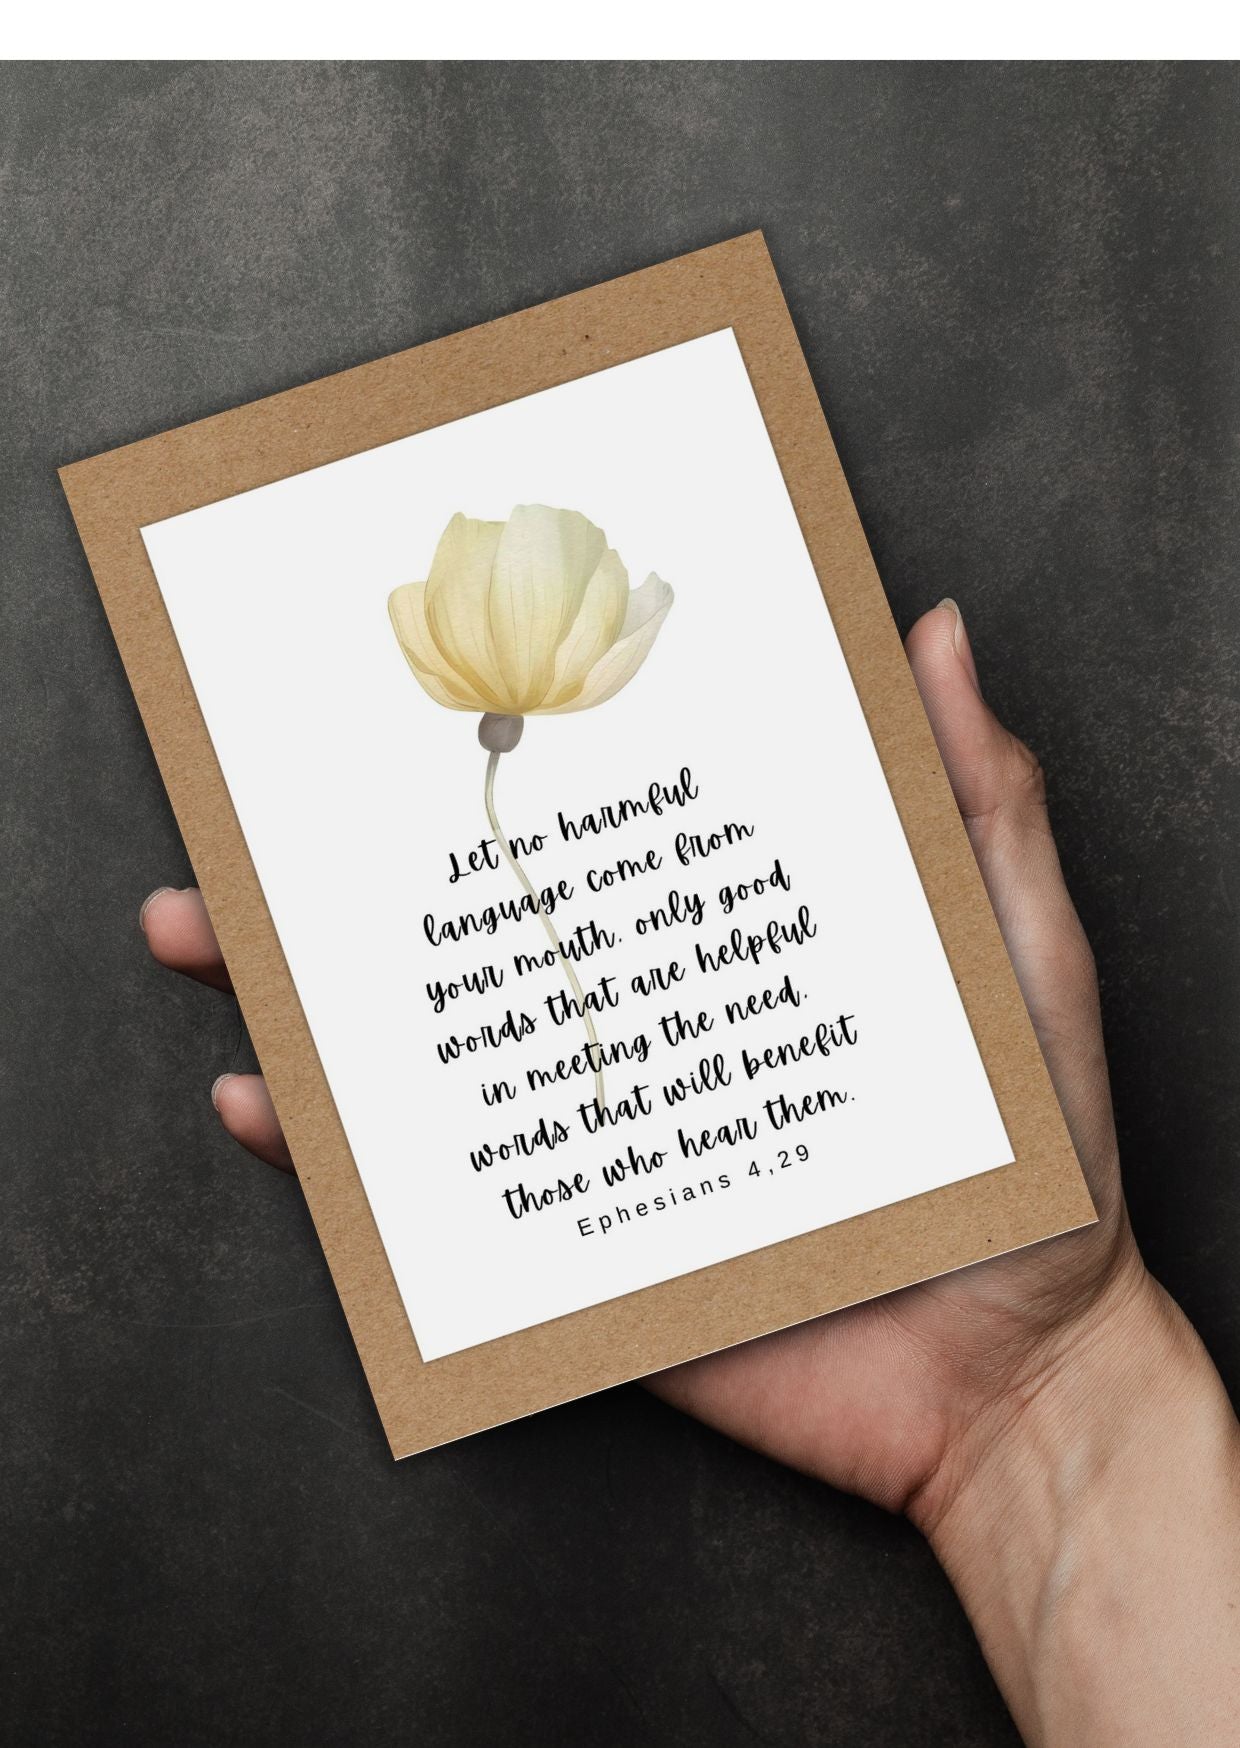 Let no harmful
language come from
your mouth. only good
words that are helpful
in meeting the need.
words that will benefit
those who hear them.
Ephesians 4,29